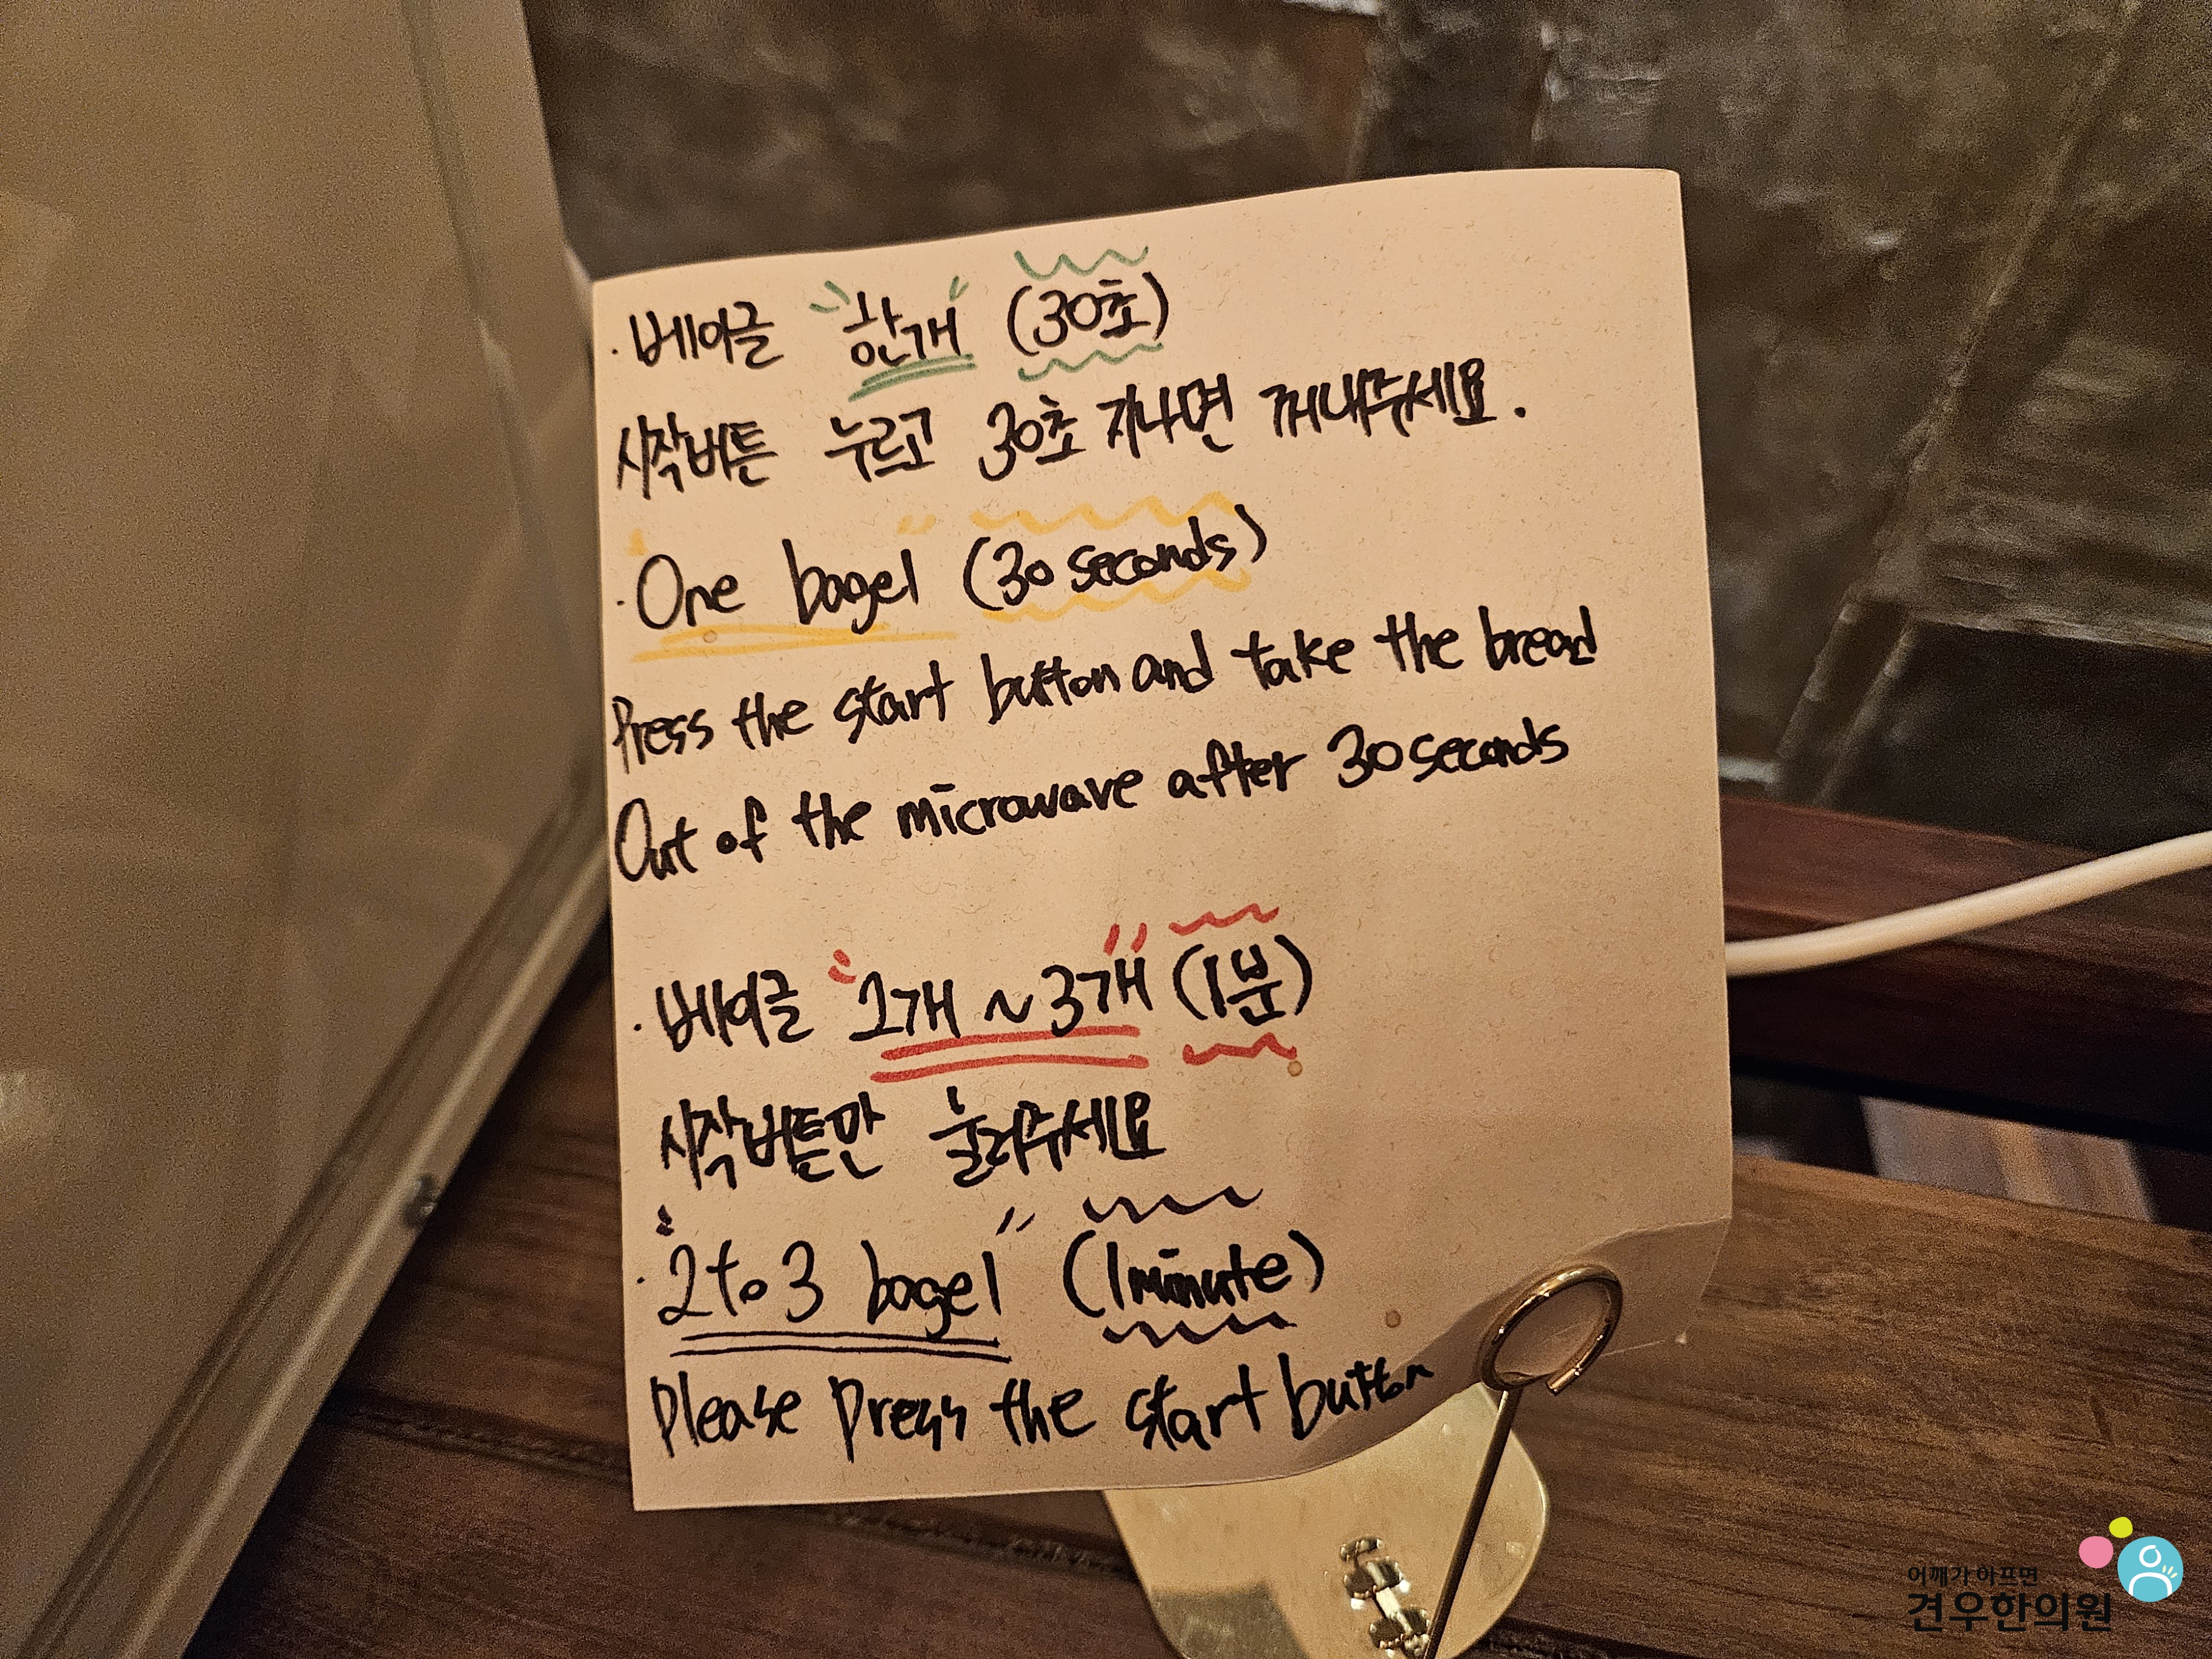 · 베이글 "한개" (30초)
시작버튼 누르고 30초 지나면 꺼내주세요.
· "One bagel" (30 seconds)
Press the start button and take the bread
Out of the microwave after 30 seconds
· 베이글 "2개 ~ 3개" (1분)
시작버튼만 눌러주세요
· "2 to 3 bagel" (1 minute)
Please Press the start button
어깨가 아프면
견우한의원